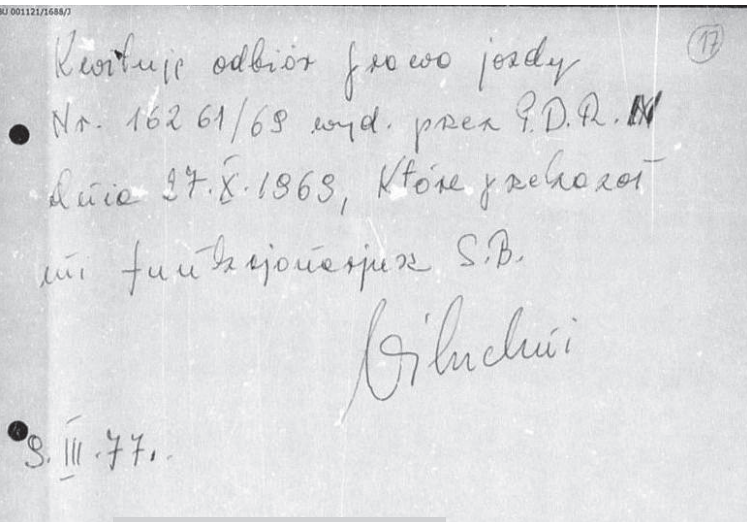 BU 001121/1688/J
17
Kwituję odbiór prawo jazdy
Nr. 16261/69 wyd. przez P.D.R.N
dnia 27.X.1969, Które przekazał
mi funkcjonariusz S.B.
9.III.77.